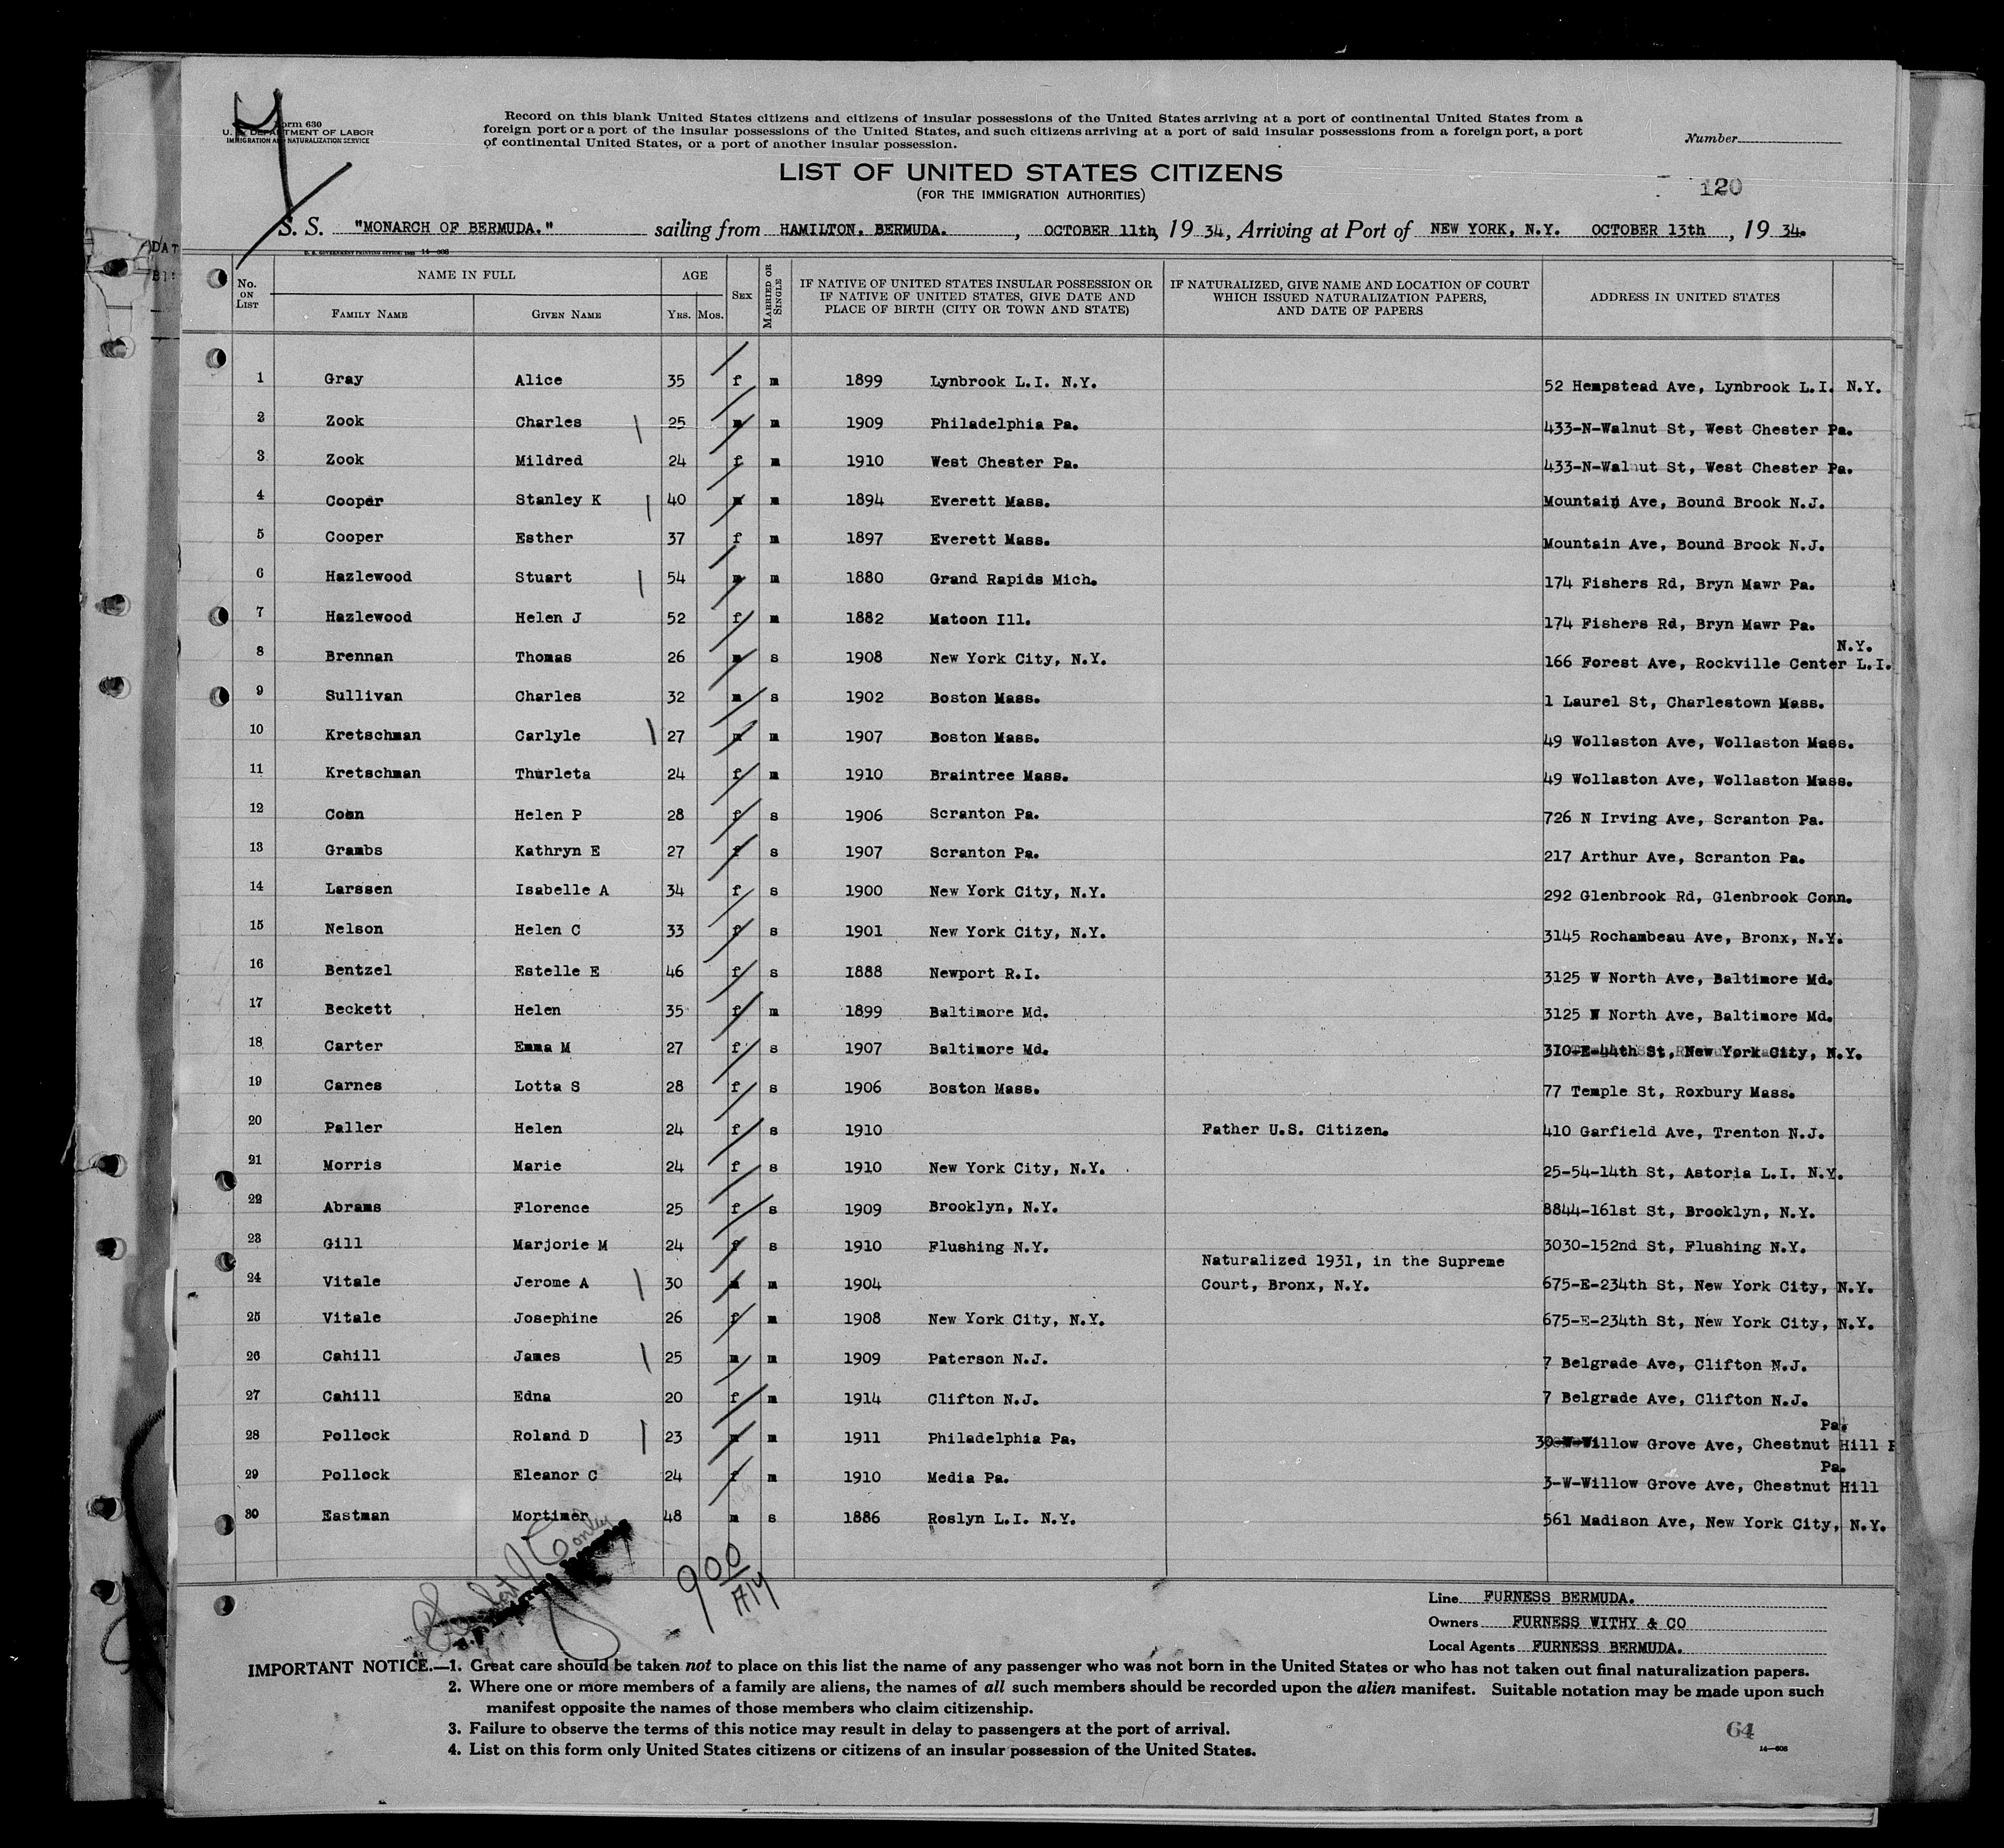 Form 630
U. S. DEPARTMENT OF LABOR
IMMIGRATION AND NATURALIZATION SERVICE
Record on this blank United States citizens and citizens of insular possessions of the United States arriving at a port of continental United States from a
foreign port or a port of the insular possessions of the United States, and such citizens arriving at a port of said insular possessions from a foreign port, a port
of continental United States, or a port of another insular possession.
Number
LIST OF UNITED STATES CITIZENS
(FOR THE IMMIGRATION AUTHORITIES)
120
S. S. "MONARCH OF BERMUDA." sailing from HAMILTON. BERMUDA. , OCTOBER 11th, 19 34, Arriving at Port of NEW YORK, N.Y. OCTOBER 13th , 19 34.
No. ON LIST NAME IN FULL FAMILY NAME GIVEN NAME AGE YRS. MOS. SEX MARRIED OR SINGLE IF NATIVE OF UNITED STATES INSULAR POSSESSION OR IF NATIVE OF UNITED STATES, GIVE DATE AND PLACE OF BIRTH (CITY OR TOWN AND STATE) IF NATURALIZED, GIVE NAME AND LOCATION OF COURT WHICH ISSUED NATURALIZATION PAPERS, AND DATE OF PAPERS ADDRESS IN UNITED STATES
1 Gray Alice 35 f m 1899 Lynbrook L.I. N.Y. 52 Hempstead Ave, Lynbrook L.I. N.Y.
2 Zook Charles 25 m m 1909 Philadelphia Pa. 433-N-Walnut St, West Chester Pa.
3 Zook Mildred 24 f m 1910 West Chester Pa. 433-N-Walnut St, West Chester Pa.
4 Cooper Stanley K 40 m m 1894 Everett Mass. Mountain Ave, Bound Brook N.J.
5 Cooper Esther 37 f m 1897 Everett Mass. Mountain Ave, Bound Brook N.J.
6 Hazlewood Stuart 54 m m 1880 Grand Rapids Mich. 174 Fishers Rd, Bryn Mawr Pa.
7 Hazlewood Helen J 52 f m 1882 Matoon Ill. 174 Fishers Rd, Bryn Mawr Pa.
8 Brennan Thomas 26 m s 1908 New York City, N.Y. 166 Forest Ave, Rockville Center L.I. N.Y.
9 Sullivan Charles 32 m s 1902 Boston Mass. 1 Laurel St, Charlestown Mass.
10 Kretschman Carlyle 27 m m 1907 Boston Mass. 49 Wollaston Ave, Wollaston Mass.
11 Kretschman Thurleta 24 f m 1910 Braintree Mass. 49 Wollaston Ave, Wollaston Mass.
12 Conn Helen P 28 f s 1906 Scranton Pa. 726 N Irving Ave, Scranton Pa.
13 Grambs Kathryn E 27 f s 1907 Scranton Pa. 217 Arthur Ave, Scranton Pa.
14 Larssen Isabelle A 34 f s 1900 New York City, N.Y. 292 Glenbrook Rd, Glenbrook Conn.
15 Nelson Helen C 33 f s 1901 New York City, N.Y. 3145 Rochambeau Ave, Bronx, N.Y.
16 Bentzel Estelle E 46 f s 1888 Newport R.I. 3125 W North Ave, Baltimore Md.
17 Beckett Helen 35 f m 1899 Baltimore Md. 3125 W North Ave, Baltimore Md.
18 Carter Emma M 27 f s 1907 Baltimore Md. 310-E-44th St, New York City, N.Y.
19 Carnes Lotta S 28 f s 1906 Boston Mass. 77 Temple St, Roxbury Mass.
20 Paller Helen 24 f s 1910 Father U.S. Citizen. 410 Garfield Ave, Trenton N.J.
21 Morris Marie 24 f s 1910 New York City, N.Y. 25-54-14th St, Astoria L.I. N.Y.
22 Abrams Florence 25 f s 1909 Brooklyn, N.Y. 8844-161st St, Brooklyn, N.Y.
23 Gill Marjorie M 24 f s 1910 Flushing N.Y. 3030-152nd St, Flushing N.Y.
Naturalized 1931, in the Supreme
24 Vitale Jerome A 30 m m 1904 Court, Bronx, N.Y. 675-E-234th St, New York City, N.Y.
25 Vitale Josephine 26 f m 1908 New York City, N.Y. 675-E-234th St, New York City, N.Y.
26 Cahill James 25 m m 1909 Paterson N.J. 7 Belgrade Ave, Clifton N.J.
27 Cahill Edna 20 f m 1914 Clifton N.J. 7 Belgrade Ave, Clifton N.J.
28 Pollock Roland D 23 m m 1911 Philadelphia Pa, Willow Grove Ave, Chestnut Hill Pa.
29 Pollock Eleanor C 24 f m 1910 Media Pa. 3-W-Willow Grove Ave, Chestnut Hill Pa.
30 Eastman Mortimer 48 m s 1886 Roslyn L.I. N.Y. 561 Madison Ave, New York City, N.Y.
900
Line FURNESS BERMUDA.
Owners FURNESS WITHY & CO
Local Agents FURNESS BERMUDA.
IMPORTANT NOTICE.—1. Great care should be taken not to place on this list the name of any passenger who was not born in the United States or who has not taken out final naturalization papers.
2. Where one or more members of a family are aliens, the names of all such members should be recorded upon the alien manifest. Suitable notation may be made upon such
manifest opposite the names of those members who claim citizenship.
3. Failure to observe the terms of this notice may result in delay to passengers at the port of arrival.
4. List on this form only United States citizens or citizens of an insular possession of the United States.
64
14—606